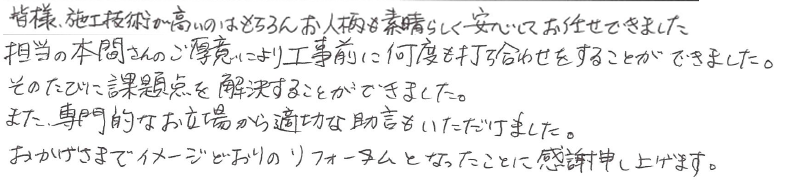 皆様、施工技術が高いのはもちろんお人柄も素晴らしく安心してお任せできました
担当の本間さんのご厚意により工事前に何度も打ち合わせをすることができました。
そのたびに課題点を解決することができました。
また、専門的なお立場から適切な助言もいただけました。
おかげさまでイメージどおりのリフォームとなったことに感謝申し上げます。